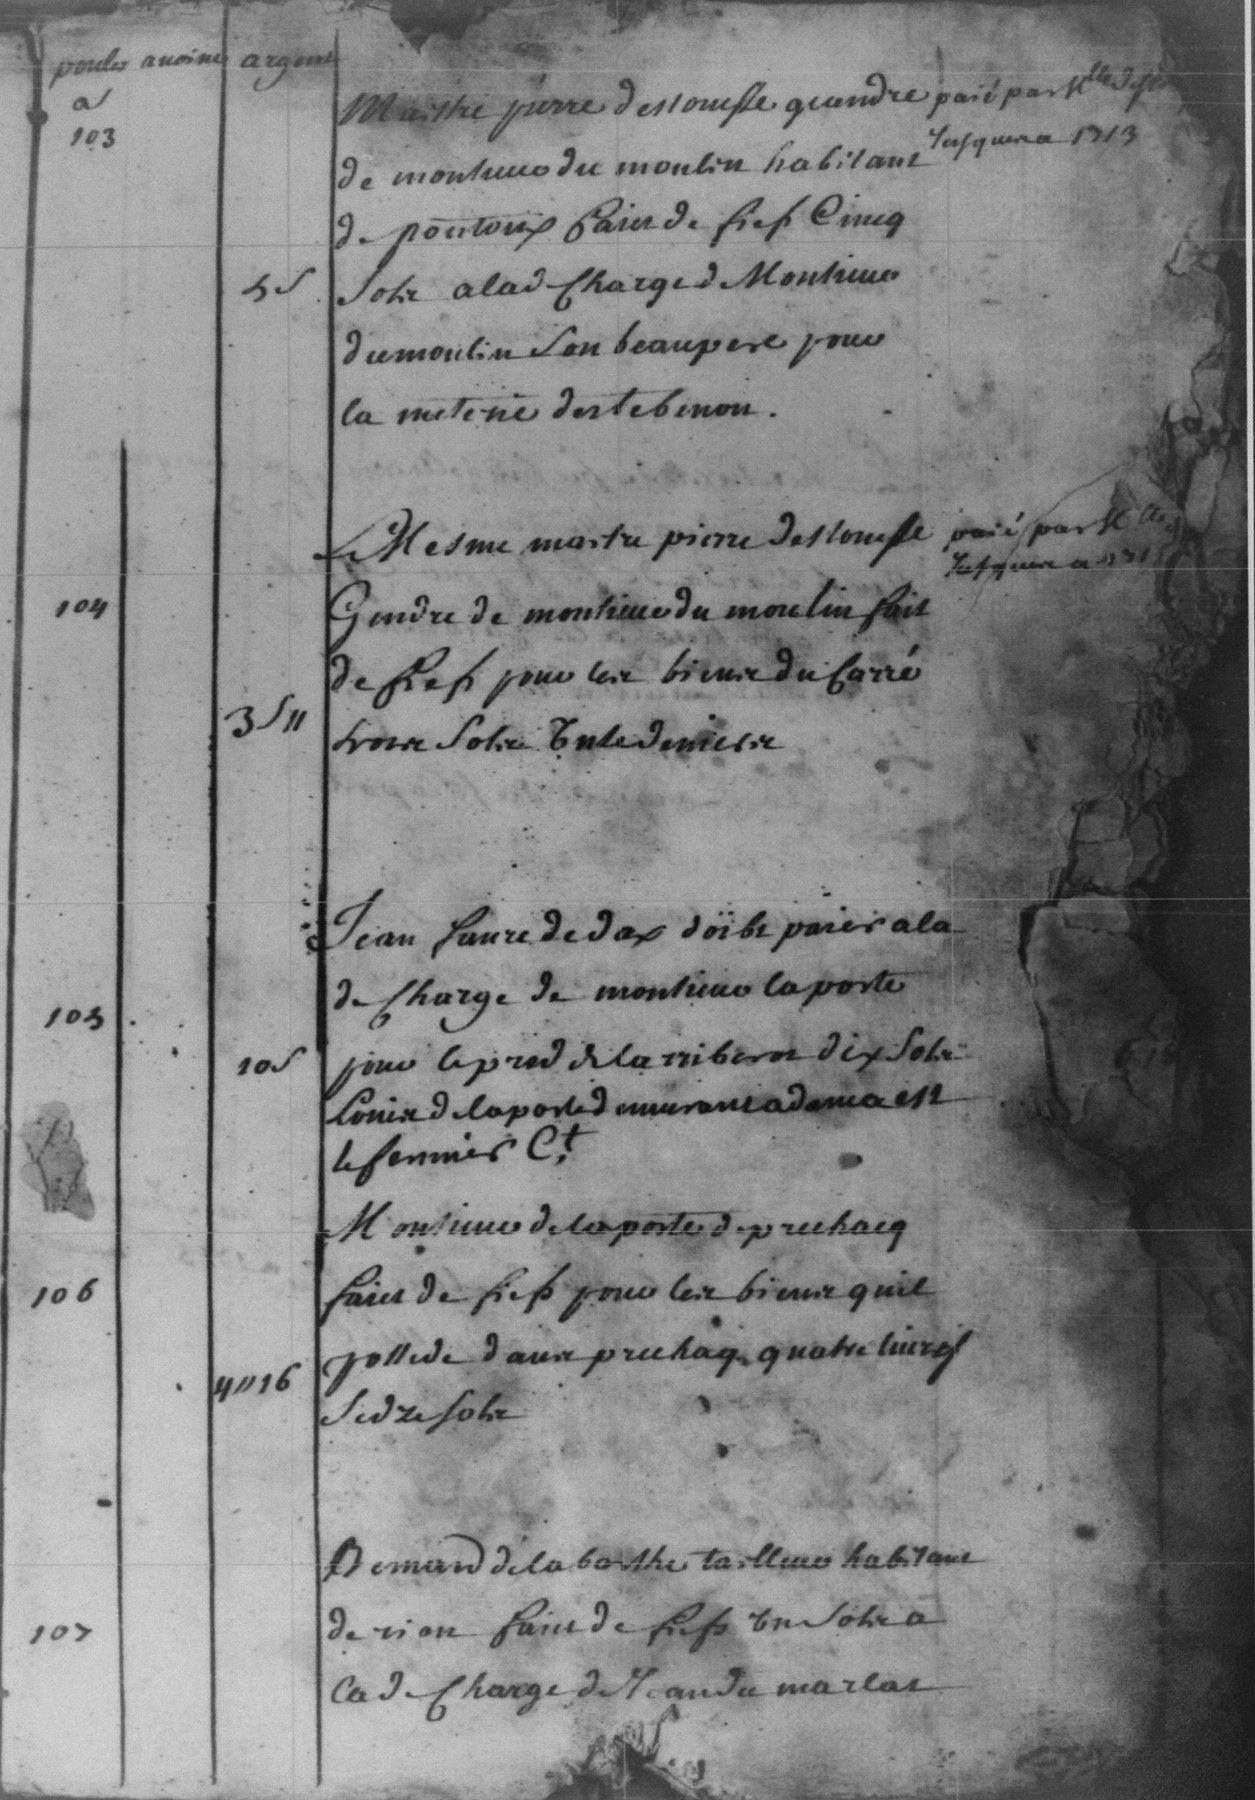 poules auoine argent
a
103
Maistre pierre destouesse guendre paié par Mlle
Jusques a 1713
de monsieur du moulin habitant
de pontonx faict de fief Cincq
5 s
Sols a lad Charge de Monsieur
dumoulin Son beaupere pour
la meterie destebenon.
Le Mesme maistre pierre destouesse paié par Mlle
Jusques a
104
Gendre de monsieur du moulin fait
de fief pour les biens du Carré
3 s 11
trois Sols Unse deniers
Jean faure de dax doibt paier a la
de Charge de monsieur laporte
105
10 s
pour le pred de larriberot dix Sols
Louis de laporte demurant a dema est
le fermier Ct
Monsieur de laporte de prechacq
106
faict de fief pour les biens quil
possede dans prechacq quatre livres
4 11 16
Sedze sols
Bernard de labarthe tailleur habitant
107
de rion faict de fief Un Sols a
la de Charge de Jean du marlat